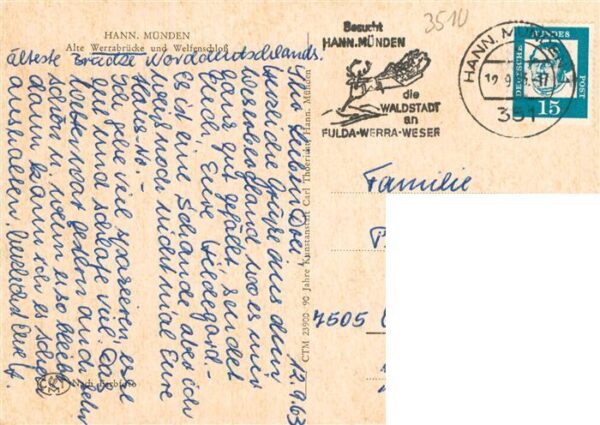 HANN. MÜNDEN
Alte Werrabrücke und Welfenschloß
älteste Brücke Norddeutschlands.
12.9.63
Ihr lieben Drei,
herzliche Grüße aus dem
Weserbergland, wo es mir
ganz gut gefällt, sendet
Euch Eure Hildegard.
Es ist eine Schande, aber ich
weiß noch nicht mal Eure
Haus-No. -
Ich gehe viel spazieren, esse
gut und schlafe viel. Das
Wetter war gestern auch sehr
schön u. wenn es so bleibt
dann kann ich es schon
aushalten, herzlichst Eure H.
Nach Farbfoto
CTM 23900 · 90 Jahre Kunstanstalt Carl Thoericht, Hann. Münden
3510
Besucht
HANN.MÜNDEN
die
WALDSTADT
an
FULDA-WERRA-WESER
HANN. MÜNDEN
351
DEUTSCHE BUNDESPOST
15
Familie
7505